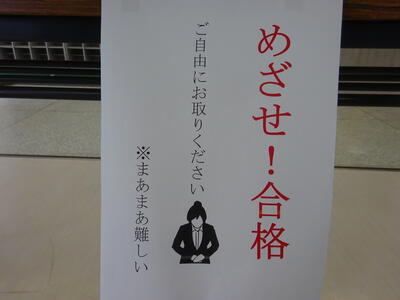 めざせ！合格
ご自由にお取りください
※まあまあ難しい